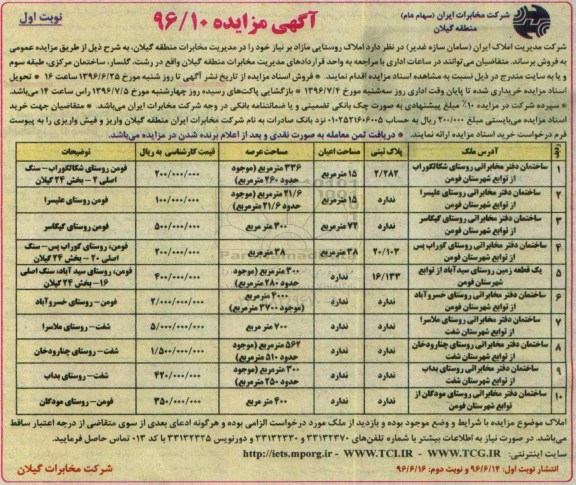 شرکت مخابرات ایران (سهام عام)
منطقه گیلان
آگهی مزایده ۹۶/۱۰
نوبت اول
شرکت مدیریت املاک ایران (سامان سازه غدیر) در نظر دارد املاک روستایی مازاد بر نیاز خود را در مدیریت مخابرات منطقه گیلان، به شرح ذیل از طریق مزایده عمومی
به فروش برساند. متقاضیان می‌توانند در ساعات اداری با مراجعه به واحد قراردادهای مدیریت مخابرات منطقه گیلان واقع در رشت، گلسار، ساختمان مرکزی، طبقه سوم
و یا به سایت مندرج در ذیل نسبت به مشاهده اسناد مزایده اقدام نمایند. * فروش اسناد مزایده از تاریخ نشر آگهی تا روز شنبه مورخ ۱۳۹۶/۶/۲۵ ساعت ۱۶ * تحویل
اسناد مزایده خریداری شده تا پایان وقت اداری روز سه‌شنبه مورخ ۱۳۹۶/۷/۴ * بازگشایی پاکت‌های رسیده روز چهارشنبه مورخ ۱۳۹۶/۷/۵ راس ساعت ۱۴ می‌باشد.
* سپرده شرکت در مزایده ۱۰٪ مبلغ پیشنهادی به صورت چک بانکی تضمینی و یا ضمانتنامه بانکی در وجه شرکت مخابرات ایران می‌باشد. * متقاضیان جهت خرید
اسناد مزایده می‌بایستی مبلغ ۲۰۰/۰۰۰ ریال به حساب ۰۱۰۲۵۲۱۶۰۶۰۰۵ نزد بانک صادرات به نام شرکت مخابرات ایران منطقه گیلان واریز و فیش واریزی را به پیوست
فرم درخواست خرید اسناد مزایده ارائه نمایند. * دریافت ثمن معامله به صورت نقدی و بعد از اعلام برنده شدن در مزایده می‌باشد.
ردیف | آدرس ملک | پلاک ثبتی | مساحت اعیان | مساحت عرصه | قیمت کارشناسی به ریال | توضیحات
۱ | ساختمان دفتر مخابراتی روستای شکالگوراب از توابع شهرستان فومن | ۲/۲۸۲ | ۱۵ مترمربع | ۳۳۶ مترمربع (موجود حدود ۲۶۰ مترمربع) | ۲۰۰/۰۰۰/۰۰۰ | فومن روستای شکالگوراب – سنگ اصلی ۲ – بخش ۲۴ گیلان
۲ | ساختمان دفتر مخابراتی روستای علیسرا از توابع شهرستان فومن | ندارد | ۱۵ مترمربع | ۲۱/۶ مترمربع (موجود حدود ۲۱/۶ مترمربع) | ۱۰۰/۰۰۰/۰۰۰ | فومن روستای علیسرا
۳ | ساختمان دفتر مخابراتی روستای گیگاسر از توابع شهرستان فومن | ندارد | ۷۲ مترمربع | ۳۰۰ متر مربع | ۵۰۰/۰۰۰/۰۰۰ | فومن روستای گیگاسر
۴ | ساختمان دفتر مخابراتی روستای گوراب پس از توابع شهرستان فومن | ۲۰/۱۰۳ | ۳۸ مترمربع | ۳۸ مترمربع | ۲۰۰/۰۰۰/۰۰۰ | فومن، روستای گوراب پس – سنگ اصلی ۲۰ – بخش ۲۴ گیلان
۵ | یک قطعه زمین روستای سیدآباد از توابع شهرستان فومن | ۱۶/۱۳۳ | ندارد | ۳۰۰ مترمربع (موجود حدود ۲۸۰ مترمربع) | ۴۰۰/۰۰۰/۰۰۰ | فومن، روستای سید آباد، سنگ اصلی ۱۶ – بخش ۲۴ گیلان
۶ | ساختمان دفتر مخابراتی روستای خسروآباد از توابع شهرستان فومن | ندارد | ندارد | ۴۰۰۰ مترمربع (موجود ۳۷۰۰ مترمربع) | ۲/۰۰۰/۰۰۰/۰۰۰ | فومن – روستای خسروآباد
۷ | ساختمان دفتر مخابراتی روستای ملاسرا از توابع شهرستان شفت | ندارد | ندارد | ۷۰۰ متر مربع | ۵/۰۰۰/۰۰۰/۰۰۰ | شفت – روستای ملاسرا
۸ | ساختمان دفتر مخابراتی روستای چنارودخان از توابع شهرستان شفت | ندارد | ندارد | ۵۶۲ مترمربع (موجود حدود ۵۱۰ مترمربع) | ۱/۵۰۰/۰۰۰/۰۰۰ | شفت – روستای چنارودخان
۹ | ساختمان دفتر مخابراتی روستای بداب از توابع شهرستان شفت | ندارد | ندارد | ۳۰۰ مترمربع (موجود حدود ۲۵۰ مترمربع) | ۴۲۰/۰۰۰/۰۰۰ | شفت – روستای بداب
۱۰ | ساختمان دفتر مخابراتی روستای مودگان از توابع شهرستان فومن | ندارد | ندارد | ۴۰۰ متر مربع | ۳۵۰/۰۰۰/۰۰۰ | فومن – روستای مودگان
املاک موضوع مزایده با شرایط و وضع موجود بوده و بازدید از ملک مورد درخواست الزامی بوده و هرگونه ادعای بعدی از سوی متقاضی از درجه اعتبار ساقط
می‌باشد. در صورت نیاز به اطلاعات بیشتر با شماره تلفن‌های ۳۳۱۳۲۳۷۰ و ۳۳۱۳۲۳۳۰ و دورنویس ۳۳۱۳۲۳۲۵ با کد ۰۱۳ تماس حاصل فرمایید.
سایت اینترنتی: http://iets.mporg.ir - WWW.TCI.IR - WWW.TCG.IR
انتشار نوبت اول: ۹۶/۶/۱۴ و نوبت دوم: ۹۶/۶/۱۶
شرکت مخابرات گیلان